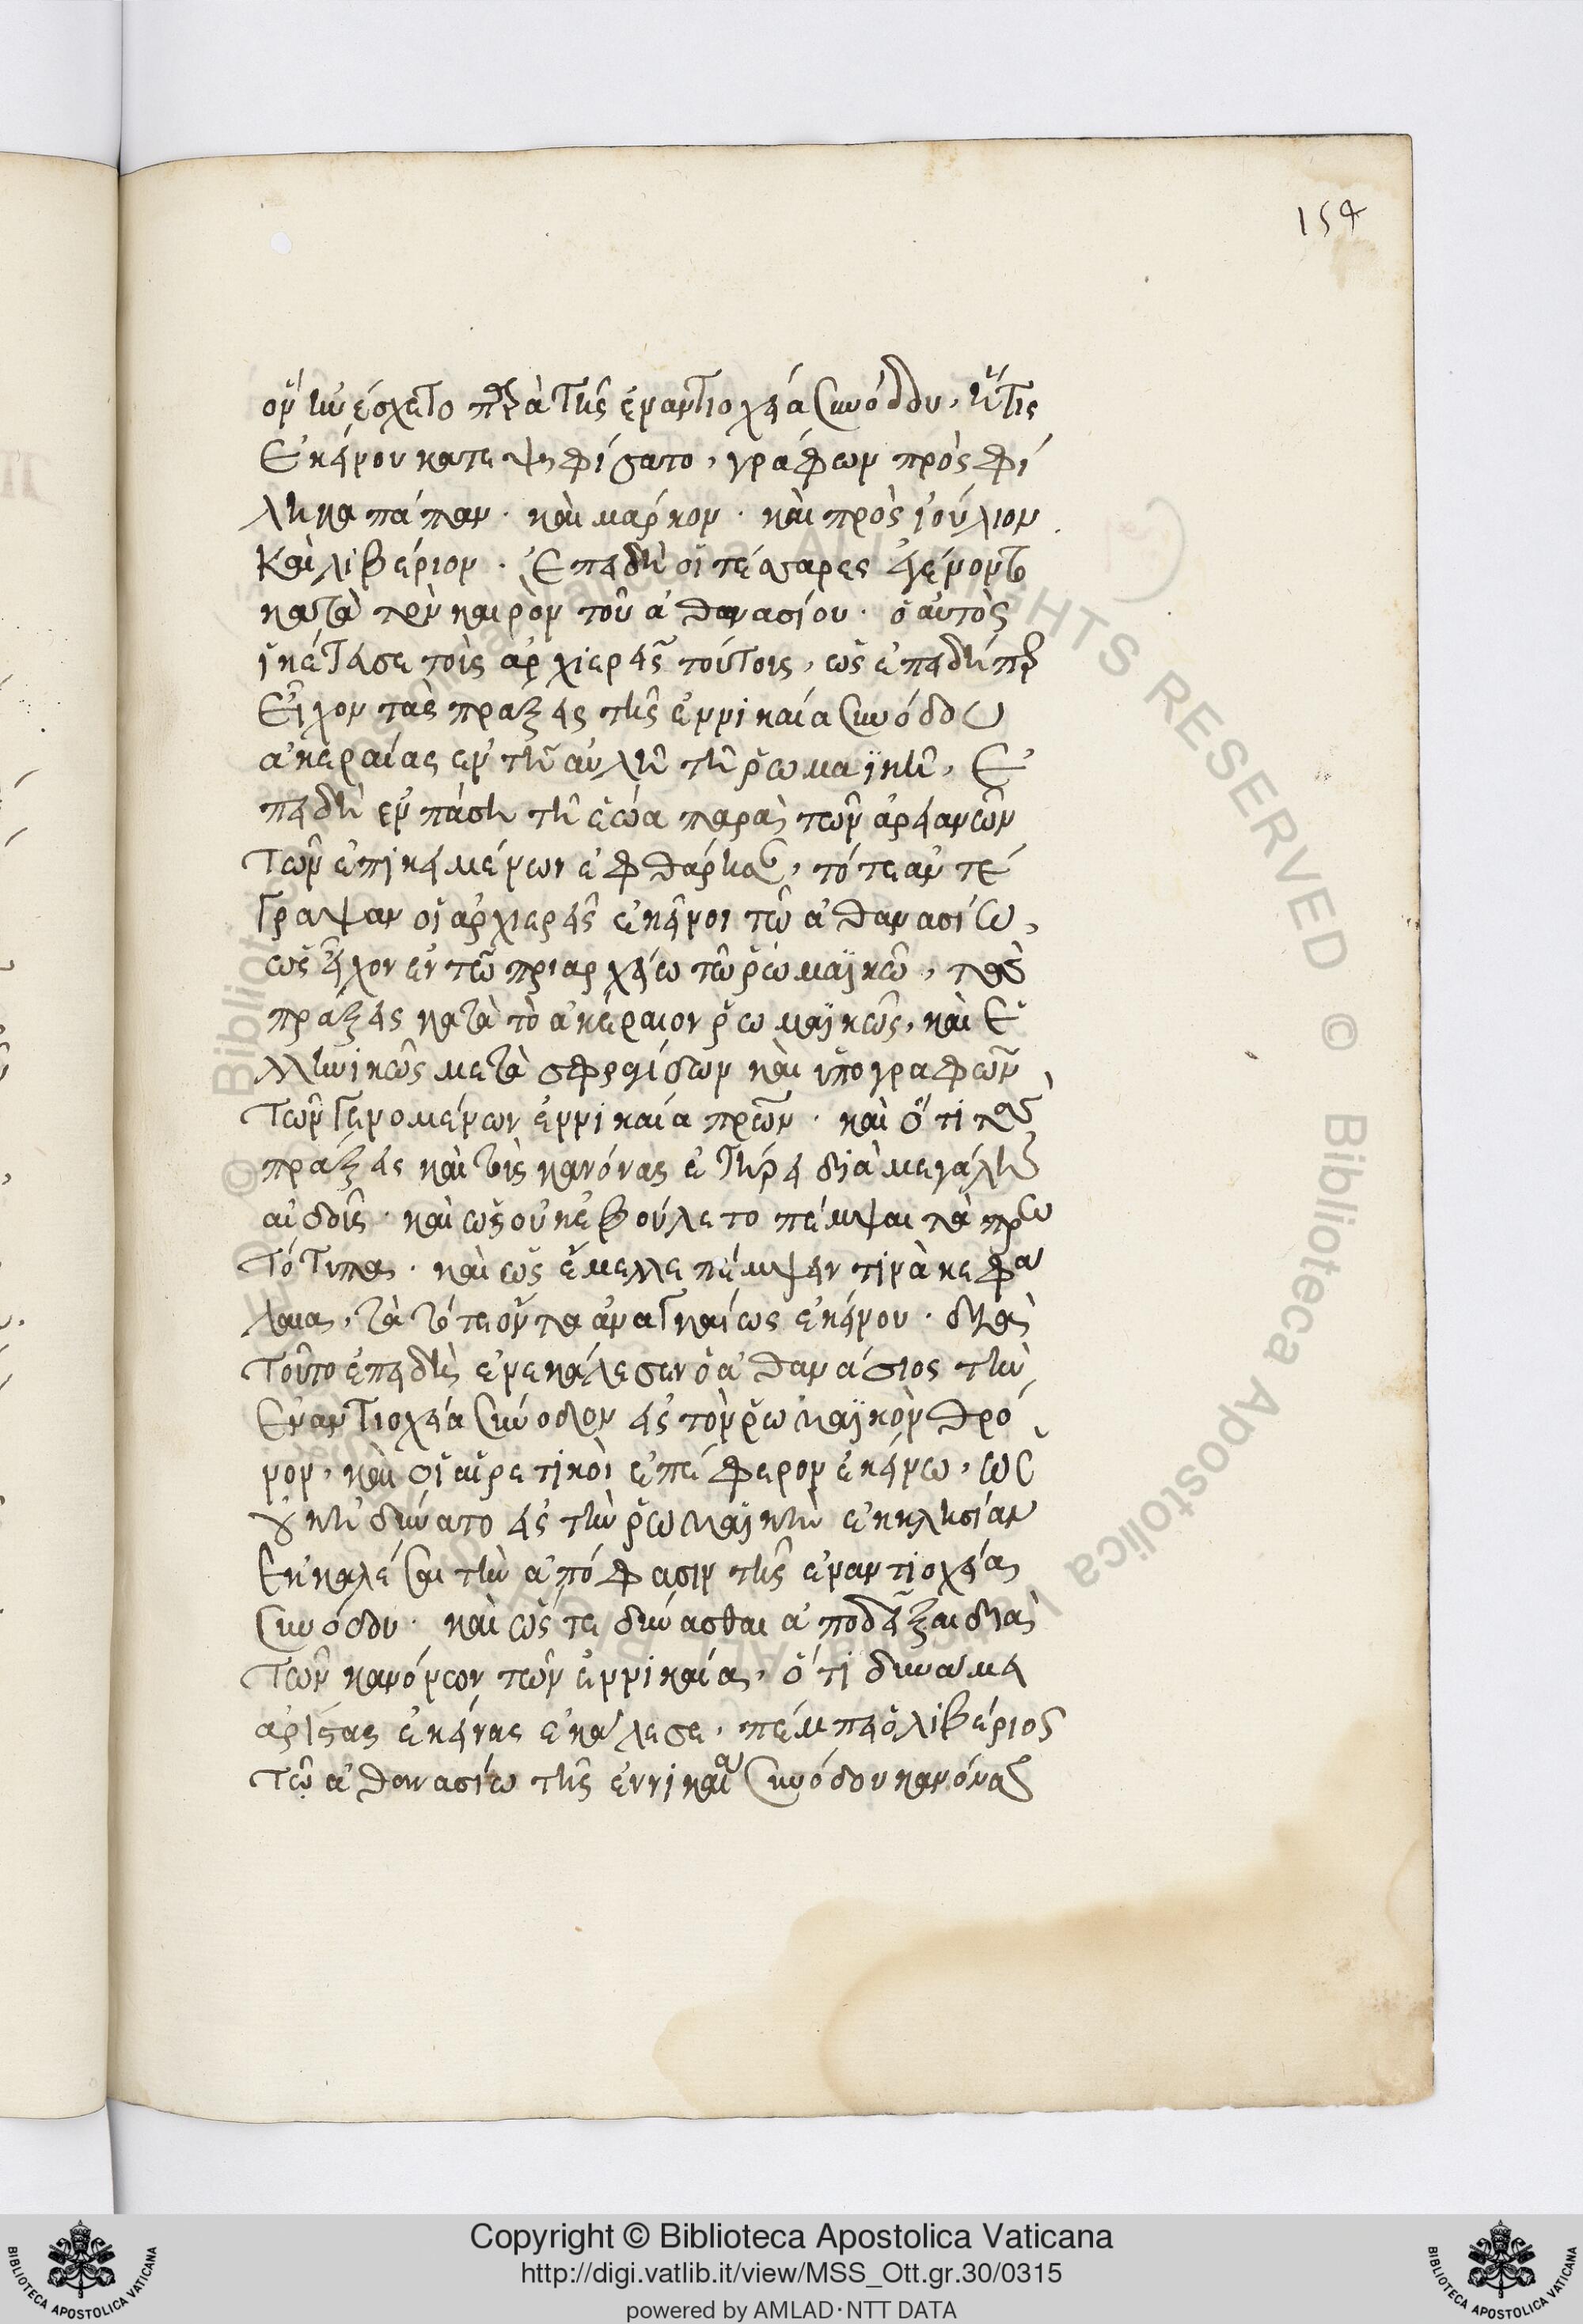 154
ὃν ἠνέσχετο παρὰ τῆς ἐν ἀντιοχεία συνόδου, ἥτις
ἐκείνου κατεψηφίσατο, γράφων πρὸς φί
ληκα πάπαν · καὶ μάρκον · καὶ πρὸς ἰούλιον
καὶ λιβέριον · ἐπειδὴ οἱ τέσσαρες ἐγένοντο
κατὰ τὸν καιρὸν τοῦ ἀθανασίου · ὁ αὐτὸς
ἱκέτευσε τοῖς ἀρχιερεῖς τούτοις, ὡς ἐπειδήπερ
εἶχον τὰς πράξεις τῆς ἐν νικαία συνόδου
ἀκεραίας ἐν τῆ αὐλῆ τῆ ῥωμαϊκῆ, ἐ
πειδὴ ἐν πάση τῆ ἑώα παρὰ τῶν ἀρειανῶν
τῶν ἐπικειμένων ἐφθάρησαν, τότε ἀντέ
γραψαν οἱ ἀρχιερεῖς ἐκεῖνοι τῶ ἀθανασίω,
ὡς εἶχον ἐν τῶ πριαρχείω τῶ ῥωμαϊκῶ, τὰς
πράξεις κατὰ τὸ ἀκέραιον ῥωμαϊκῶς, καὶ ἑ
λληνικῶς μετὰ σφραγίδων καὶ ὑπογραφῶν
τῶν γενομένων ἐν νικαία πρῶν · καὶ ὅτι τὰς
πράξεις καὶ τοὺς κανόνας ἐτήρει διὰ μεγάλης
αἰδοῦς · καὶ ὡς οὐκ ἐβούλετο πέμψαι τὰ πρω
τότυπα · καὶ ὡς ἔμελλε πέμψειν τινὰ κεφά
λαια, τὰ τότε ὄντα ἀναγκαίως ἐκείνου · διὰ
τοῦτο ἐπειδὴ ἐνεκάλεσεν ὁ ἀθανάσιος τὴν
ἐν ἀντιοχεία σύνοδον εἰς τὸν ῥωμαϊκὸν θρό
νον, καὶ οἱ αἱρετικοὶ ἐπέφερον ἐκείνω, ὡς
οὐκ ἠδύνατο εἰς τὴν ῥωμαϊκὴν ἐκκλησίαν
ἐκκαλέσαι τὴν ἀπόφασιν τῆς ἐν ἀντιοχείας
συνόδου · καὶ ὥστε δύνασθαι ἀποδεῖξαι διὰ
τῶν κανόνων τῶν ἐν νικαία, ὅτι δυνάμει
ἐκείνας ἐκάλεσε, πέμπει ὁ λιβέριος
τῶ ἀθανασίω τῆς ἐν νικαία συνόδου κανόνας
Copyright © Biblioteca Apostolica Vaticana
http://digi.vatlib.it/view/MSS_Ott.gr.30/0315
powered by AMLAD·NTT DATA